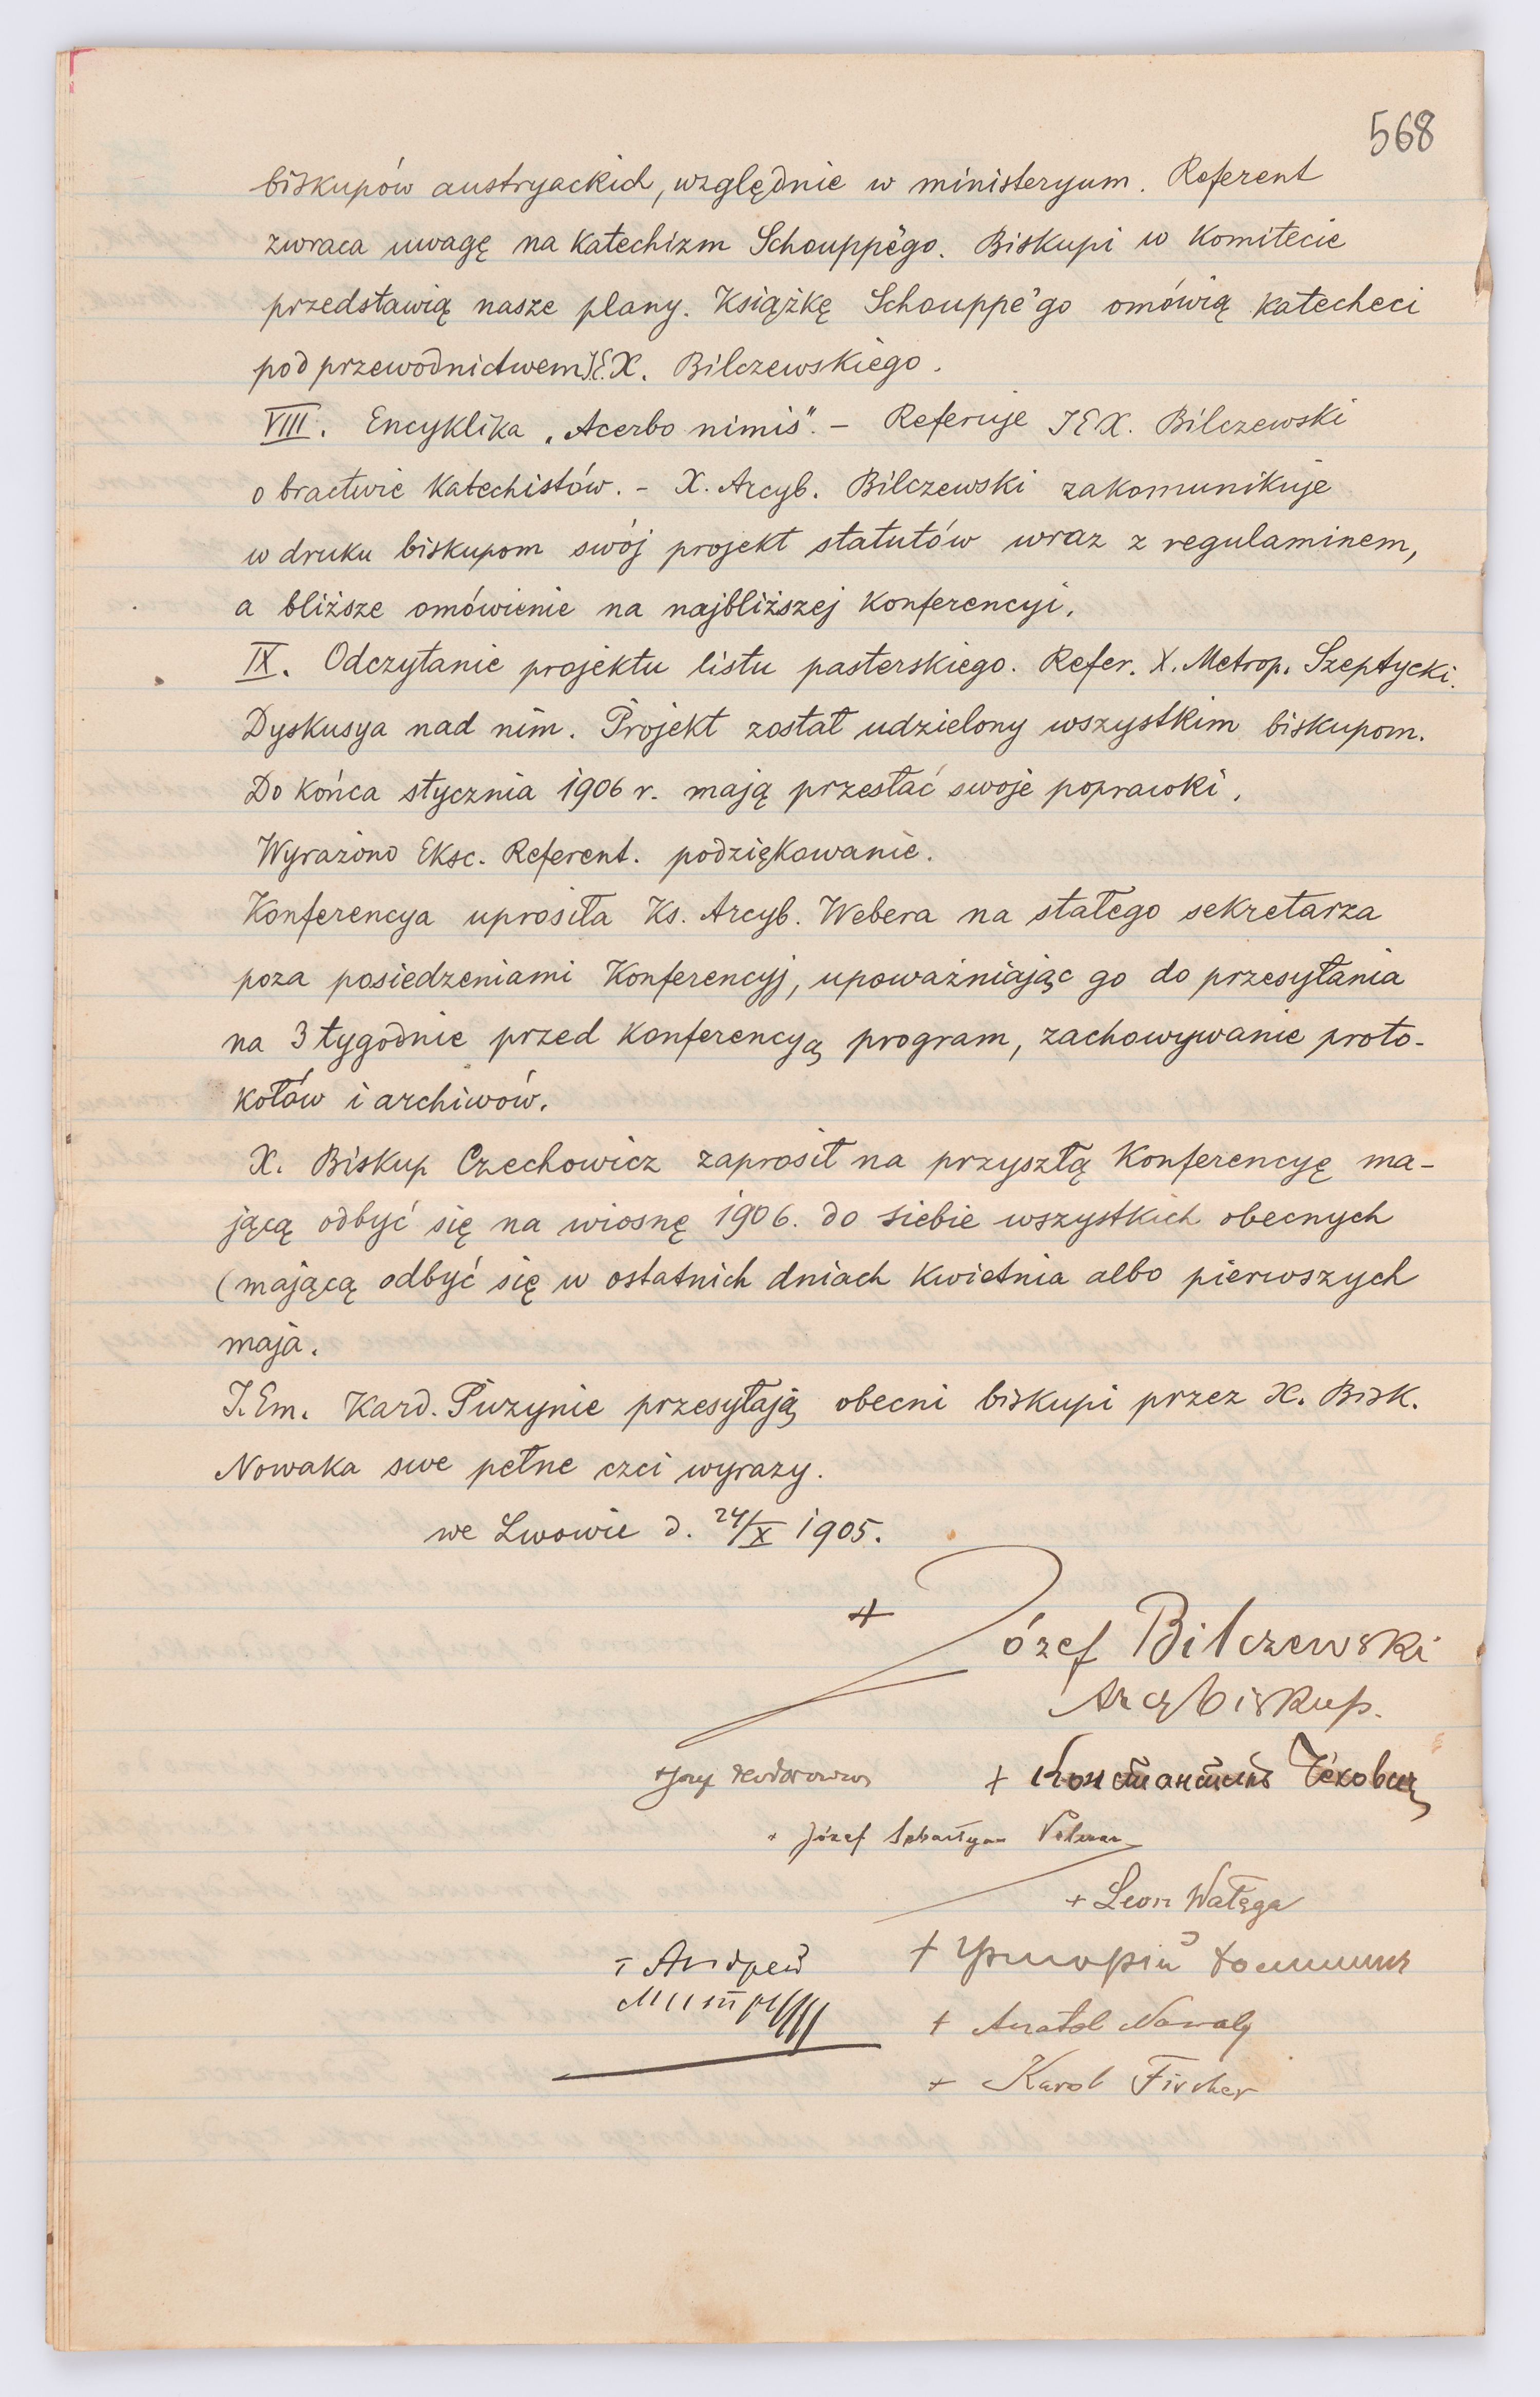 568
biskupów austryackich, względnie w ministeryum. Referent
zwraca uwagę na Katechizm Schouppe'go. Biskupi w Komitecie
przedstawią nasze plany. Książkę Schouppe'go omówią Katecheci
pod przewodnictwem JE.X. Bilczewskiego.
VIII. Encyklika „Acerbo nimis". – Referuje JEX. Bilczewski
o bractwie Katechistów. – X. Arcyb. Bilczewski zakomunikuje
w druku biskupom swój projekt statutów wraz z regulaminem,
a bliższe omówienie na najbliższej Konferencyi.
IX. Odczytanie projektu listu pasterskiego. Refer. X. Metrop. Szeptycki.
Dyskusya nad nim. Projekt został udzielony wszystkim biskupom.
Do Końca stycznia 1906 r. mają przesłać swoje poprawki.
Wyrażono Eksc. Referent. podziękowanie.
Konferencya uprosiła Ks. Arcyb. Webera na stałego sekretarza
poza posiedzeniami Konferencyj, upoważniając go do przesyłania
na 3 tygodnie przed Konferencyą program, zachowywanie proto-
kołów i archiwów.
X. Biskup Czechowicz zaprosił na przyszłą Konferencyę ma-
jącą odbyć się na wiosnę 1906. do siebie wszystkich obecnych
(mającą odbyć się w ostatnich dniach Kwietnia albo pierwszych
maja.
J.Em. Kard. Puzynie przesyłają obecni biskupi przez X. Bisk.
Nowaka swe pełne czci wyrazy.
we Lwowie d. 24/X 1905.
+ Józef Bilczewski
Arcybiskup.
+ Józef Teodorowicz
+ Константинъ Чеховичъ
+ Józef Sebastyan Pelczar
+ Leon Wałęga
+ Григорій Хомишин
+ Андрей
Митр
+ Anatol Nowak
+ Karol Fischer